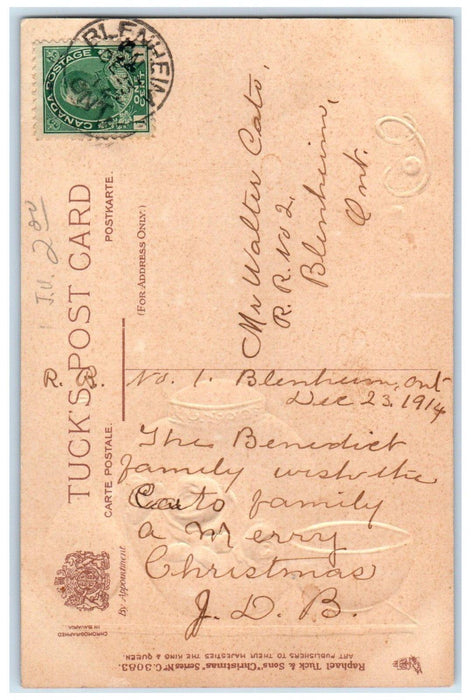 BLENHEIM
ONT
CANADA POSTAGE
ONE CENT
J.V. 2.00
TUCK'S POST CARD
CARTE POSTALE.
POSTKARTE.
(FOR ADDRESS ONLY.)
By Appointment
CHROMOGRAPHED
IN BAVARIA
Mr Walter Cato,
R. R. No 2.
Blenheim,
Ont.
R. R. No. 1. Blenheim, Ont
Dec 23, 1914
The Benedict
family wish the
Cato family
a Merry
Christmas
J. D. B.
Raphael Tuck & Sons' "Christmas" Series No C. 3083.
ART PUBLISHERS TO THEIR MAJESTIES THE KING & QUEEN.